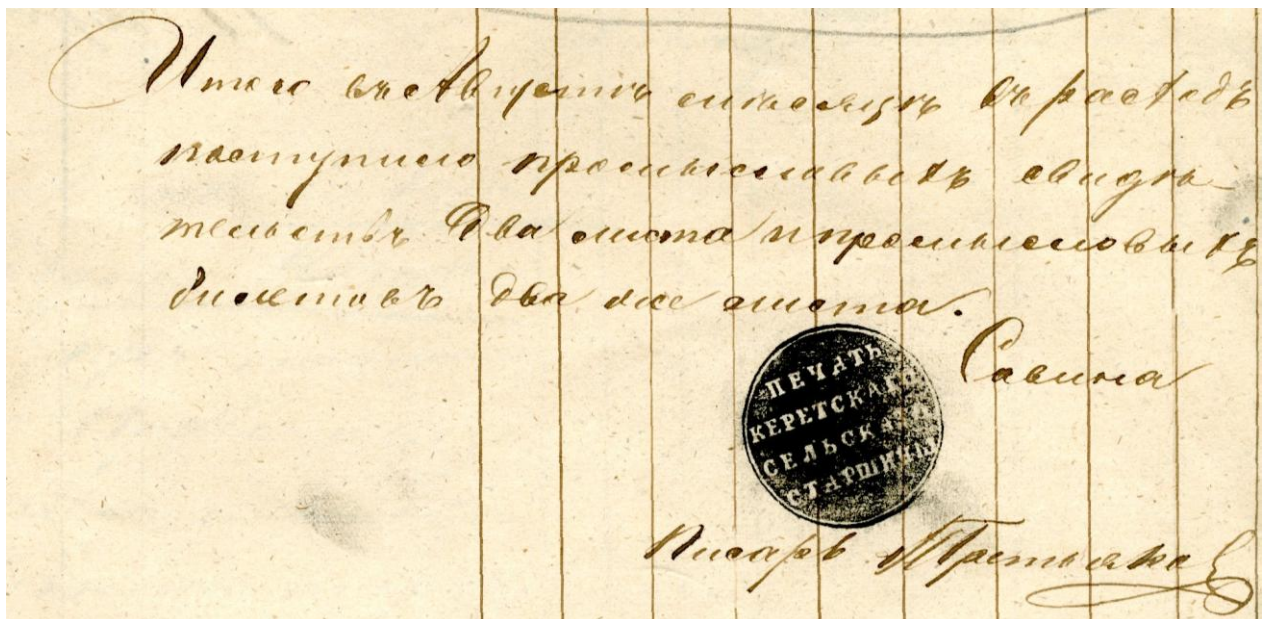 Итого въ Августѣ мѣсяцѣ въ расходъ
поступило промысловыхъ свидѣ-
тельствъ два листа и промысловыхъ
билетовъ два же листа.
Савина
ПЕЧАТЬ
КЕРЕТСКАГО
СЕЛЬСКАГО
СТАРШИНЫ
Писарь